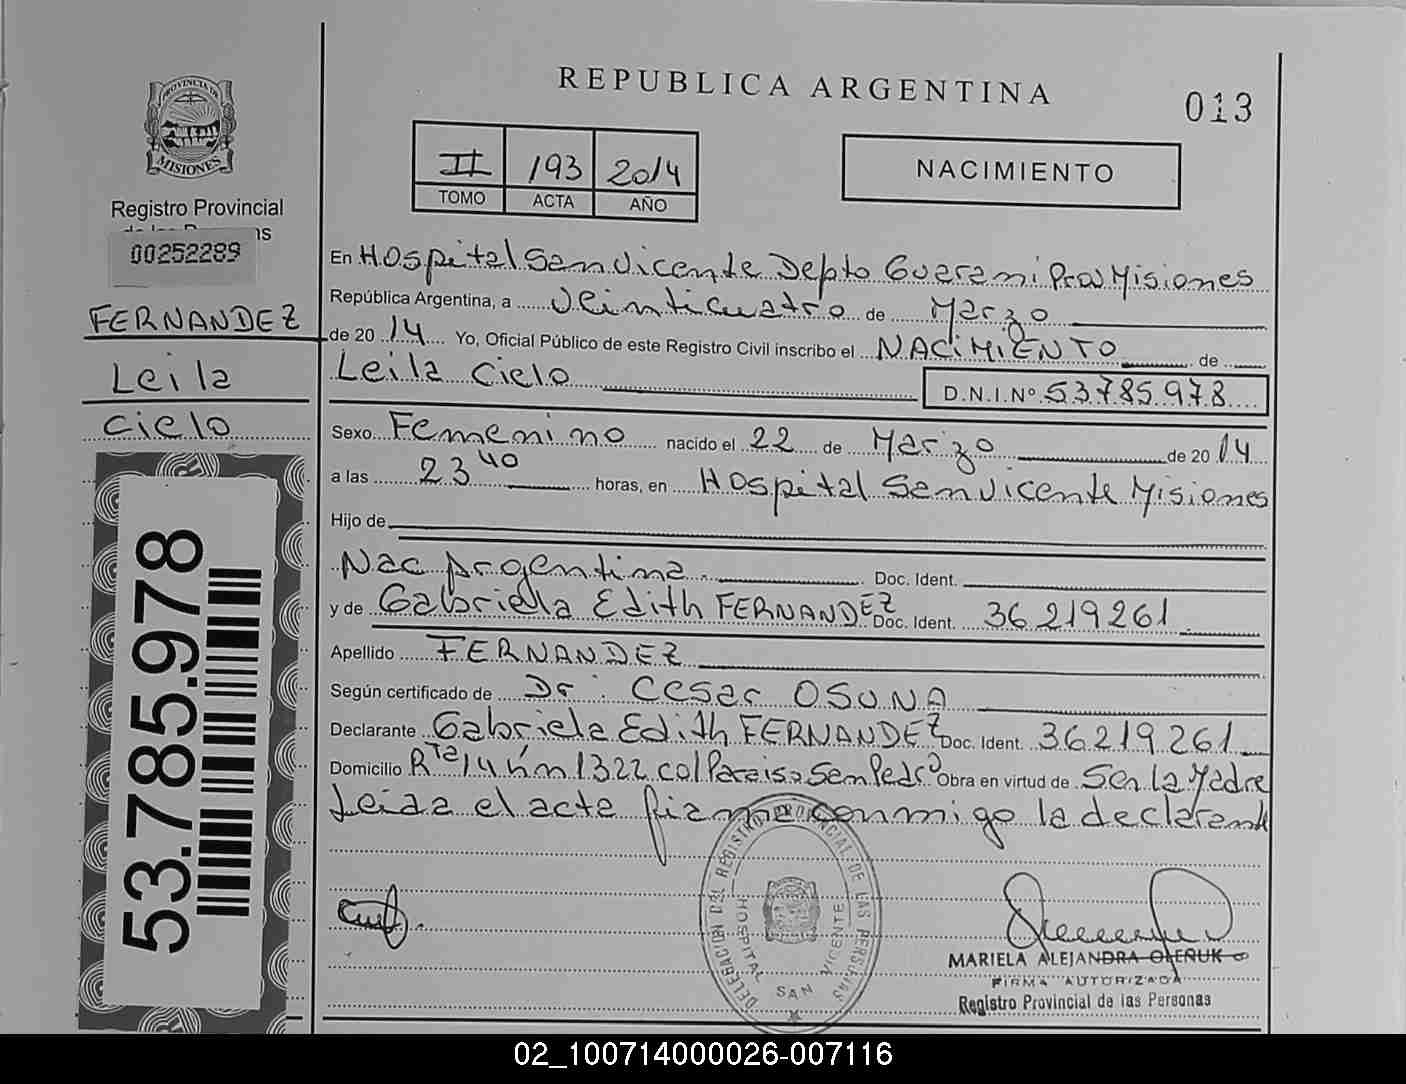 REPUBLICA ARGENTINA
013
PROVINCIA DE
MISIONES
Registro Provincial
00252289
FERNANDEZ
Leila
Cielo
53.785.978
II 193 2014
TOMO ACTA AÑO
NACIMIENTO
En Hospital San Vicente Depto Guarani Prov Misiones
República Argentina, a veinticuatro de Marzo
de 20 14 Yo, Oficial Público de este Registro Civil inscribo el NACIMIENTO de
Leila Cielo D.N.I.Nº 53785978
Sexo Femenino nacido el 22 de Marzo de 2014
a las 23 40 horas, en Hospital San Vicente Misiones
Hijo de
Nac Argentina Doc. Ident.
y de Gabriela Edith FERNANDEZ Doc. Ident. 36219261
Apellido FERNANDEZ
Según certificado de Dr. Cesar OSUNA
Declarante Gabriela Edith FERNANDEZ Doc. Ident. 36219261
Domicilio Rta 14 km 1322 col Paraiso San Pedro Obra en virtud de Ser La Madre
Leida el acta firma conmigo la declarante
DELEGACION DEL REGISTRO PROVINCIAL DE LAS PERSONAS
HOSPITAL SAN VICENTE
MARIELA ALEJANDRA OLEÑUK
FIRMA AUTORIZADA
Registro Provincial de las Personas
02_100714000026-007116